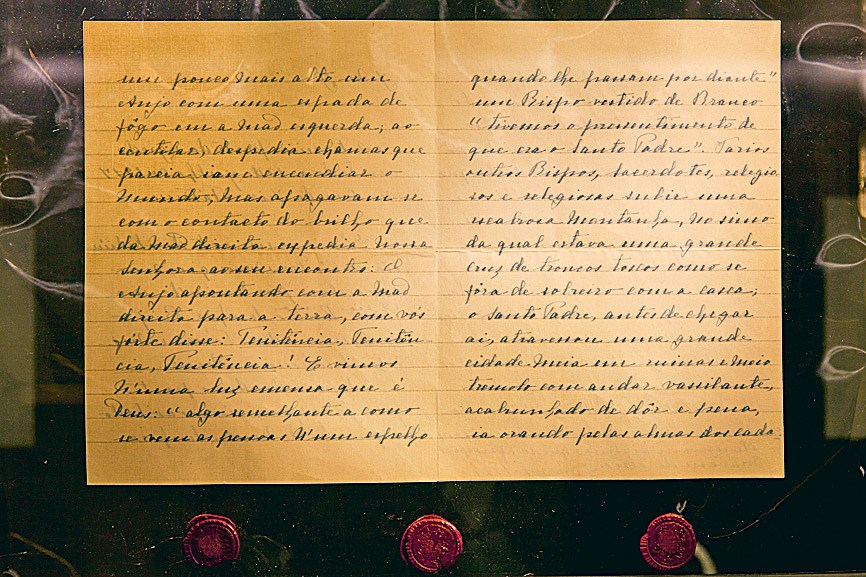 um pouco mais alto um
Anjo com uma espada de
fôgo em a mão esquerda; ao
centilar, despedia chamas que
parecia iam encendiar o
mundo; mas apagavam-se
com o contacto do brilho que
da mão direita expedia Nossa
Senhora ao seu encontro: O
Anjo apontando com a mão
direita para a terra, com vós
forte disse: Penitência, Penitên-
cia, Penitência! E vimos
n'uma luz emensa que é
Deus: "algo semelhante a como
se vem as pessoas n'um espelho
quando lhe passam por diante"
um Bispo vestido de Branco
"tivemos o pressentimento de
que era o Santo Padre". Varios
outros Bispos, Sacerdotes, religio
sos e religiosas subir uma
escabrosa montanha, no simo
da qual estava uma grande
cruz de troncos toscos como se
fôra de sobreiro com a casca;
o Santo Padre, antes de chegar
aí, atravessou uma grande
cidade meia em ruinas e meio
tremolo com andar vassilante,
acabrunhado de dôr e pena,
ia orando pelas almas dos cada